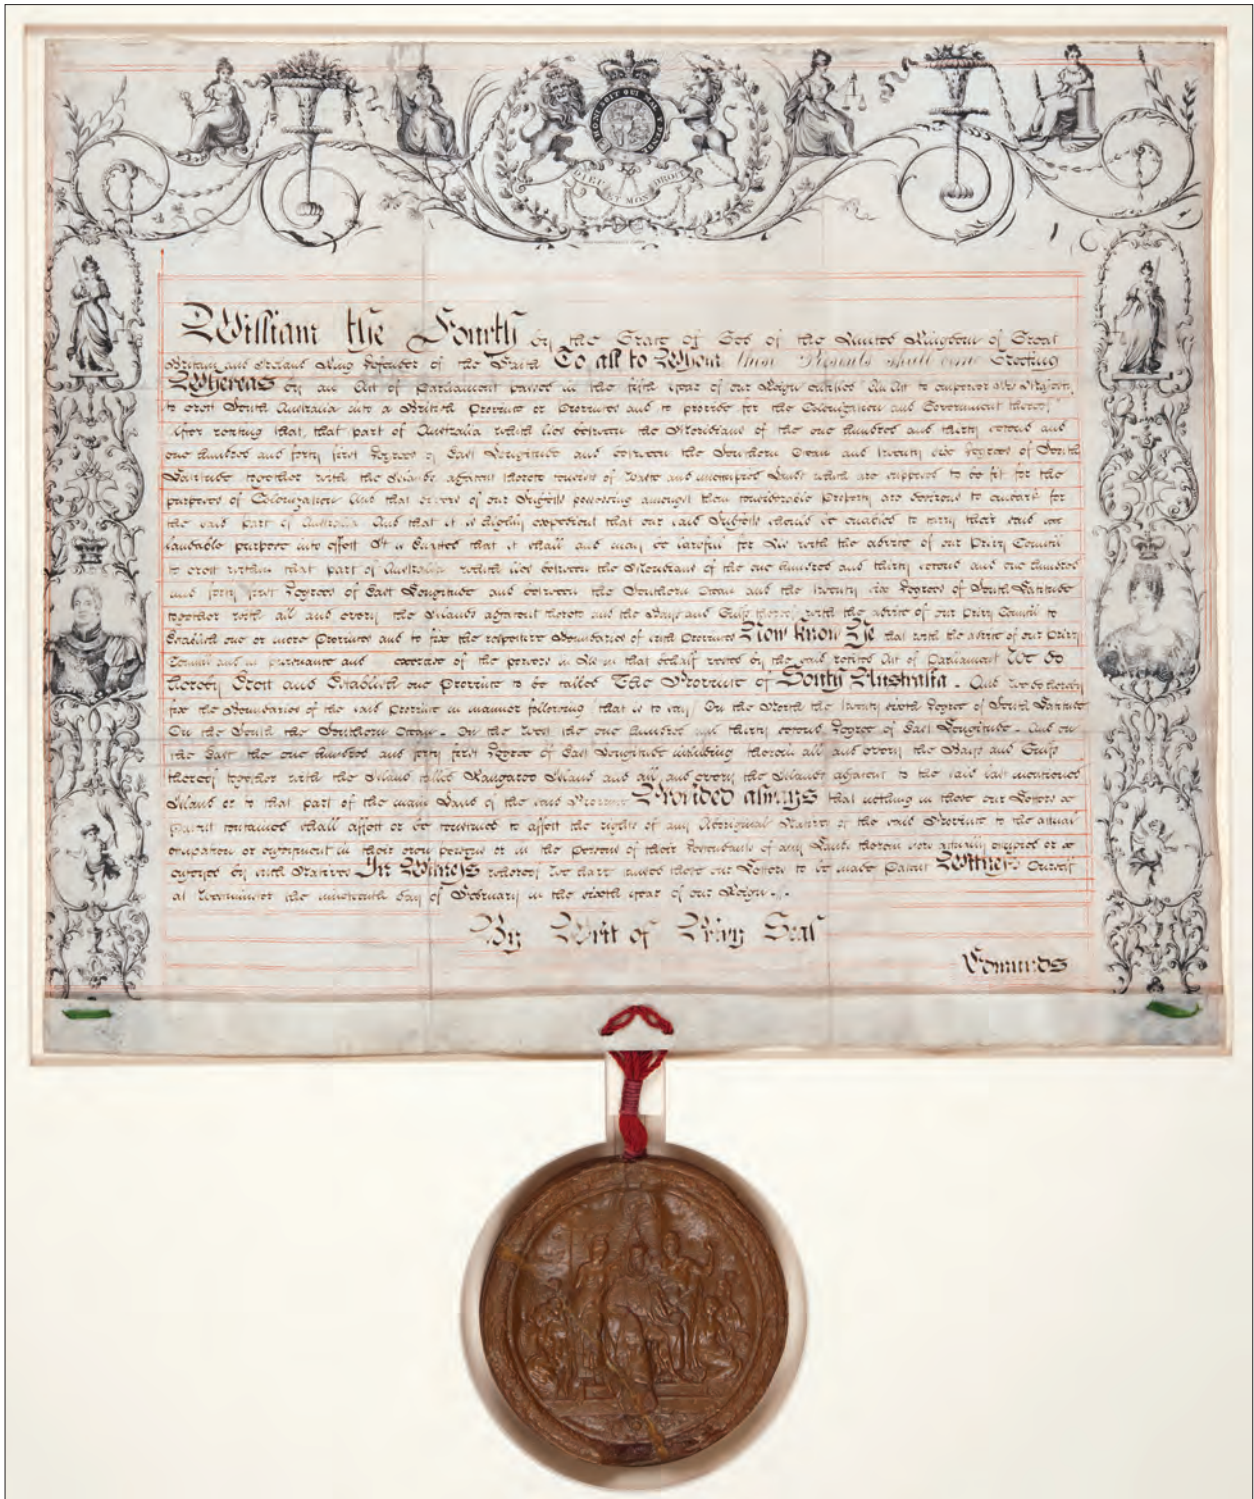 HONI SOIT QUI MAL Y PENSE
DIEU ET MON DROIT
William the Fourth by the Grace of God of the United Kingdom of Great
Britain and Ireland King Defender of the Faith To all to Whom these Presents shall come Greeting
Whereas by an Act of Parliament passed in the fifth year of our Reign entitled An Act to empower His Majesty
to erect South Australia into a British Province or Provinces and to provide for the Colonization and Government thereof
After reciting that, that part of Australia which lies between the Meridians of the one hundred and thirty second and
one hundred and forty first degrees of East Longitude and between the Southern Ocean and twenty six degrees of South
Latitude together with the Islands adjacent thereto consists of waste and unoccupied Lands which are supposed to be fit for the
purposes of Colonization And that divers of our Subjects possessing amongst them considerable Property are desirous to embark for
the said part of Australia And that it is highly expedient that our said Subjects should be enabled to carry their said
laudable purpose into effect It is Enacted that it shall and may be lawful for Us with the advice of our Privy Council
to erect within that part of Australia which lies between the Meridians of the one hundred and thirty second and one hundred
and forty first degrees of East Longitude and between the Southern Ocean and the twenty six degrees of South Latitude
together with all and every the Islands adjacent thereto and the Bays and Gulfs thereof with the advice of our Privy Council to
Establish one or more Provinces and to fix the respective Boundaries of such Provinces Now Know Ye that with the advice of our Privy
Council and in pursuance and exercise of the powers in Us in that behalf vested by the said recited Act of Parliament We do
hereby Erect and Establish one Province to be called The Province of South Australia. And we do hereby
fix the Boundaries of the said Province in manner following that is to say On the North the twenty sixth Degree of South Latitude
On the South the Southern Ocean. On the West the one hundred and thirty second Degree of East Longitude. And on
the East the one hundred and forty first Degree of East Longitude including therein all and every the Bays and Gulfs
thereof together with the Island called Kangaroo Island and all and every the Islands adjacent to the said last mentioned
Island or to that part of the main Land of the said Province Provided always that nothing in these our Letters
Patent contained shall affect or be construed to affect the rights of any Aboriginal Natives of the said Province to the actual
occupation or enjoyment in their own persons or in the persons of their descendants of any Lands therein now actually occupied or
enjoyed by such Natives In Witness whereof We have caused these our Letters to be made Patent Witness Ourself
at Westminster the nineteenth day of February in the sixth year of our Reign.
By Writ of Privy Seal
Edmunds